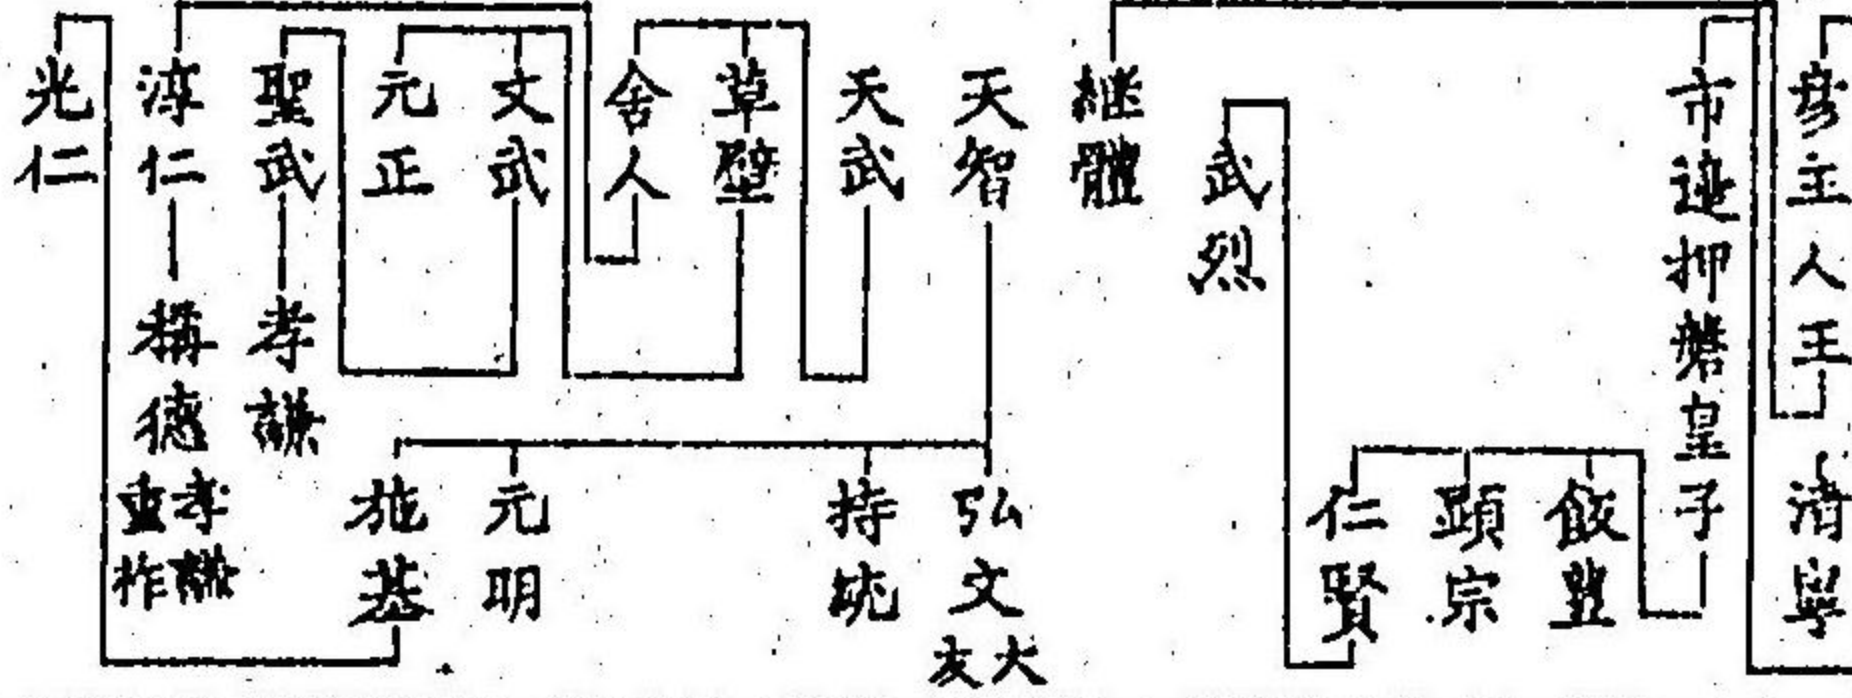 彦主人王
清寧
市邊押磐皇子
飯豐
顕宗
仁賢
武烈
継體
天智
弘文
大友
持統
元明
施基
天武
草壁
舍人
文武
元正
聖武
孝謙
淳仁
稱德
孝謙
重祚
光仁